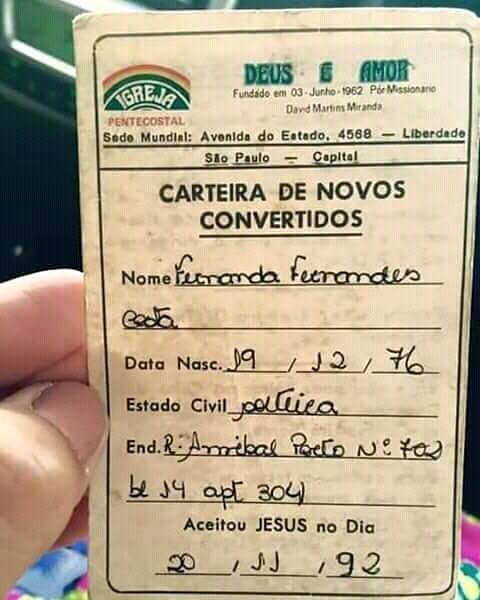 IGREJA
PENTECOSTAL
DEUS E AMOR
Fundado em 03-Junho-1962 Pôr Missionario
David Martins Miranda
Sede Mundial: Avenida do Estado, 4568 — Liberdade
São Paulo — Capital
CARTEIRA DE NOVOS
CONVERTIDOS
Nome Fernanda Fernandes
Costa
Data Nasc. 19 / 12 / 76
Estado Civil solteira
End. R. Annibal Porto Nº 702
bl 14 apt 304
Aceitou JESUS no Dia
20 / 11 / 92